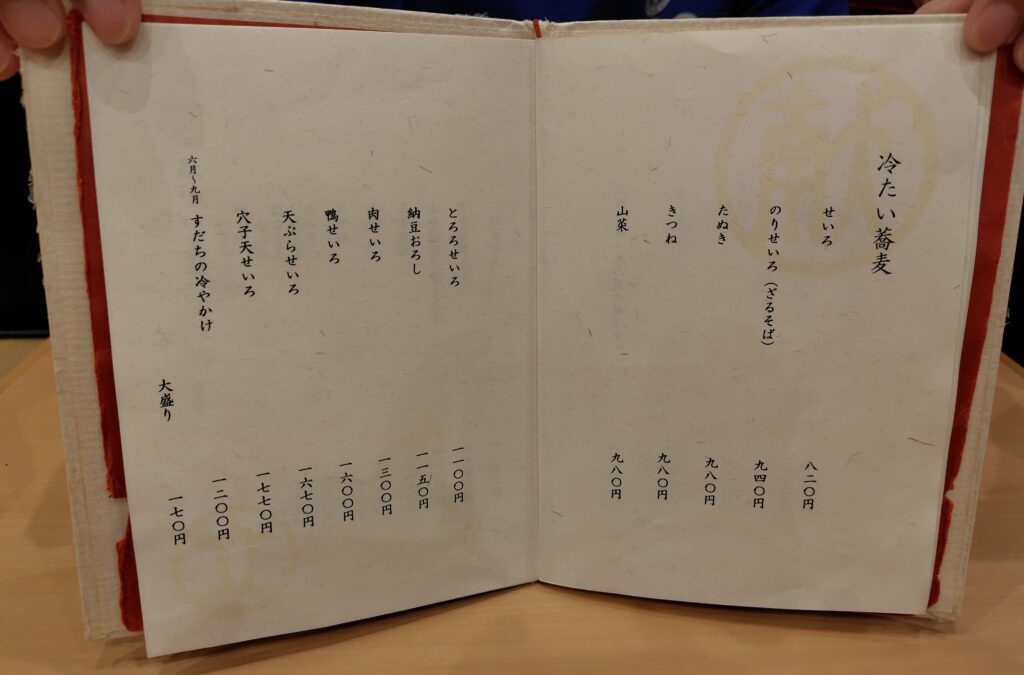 冷たい蕎麦
せいろ 八二〇円
のりせいろ（ざるそば） 九四〇円
たぬき 九八〇円
きつね 九八〇円
山菜 九八〇円
とろろせいろ 一一〇〇円
納豆おろし 一一五〇円
肉せいろ 一三〇〇円
鴨せいろ 一六〇〇円
天ぷらせいろ 一六七〇円
穴子天せいろ 一七七〇円
六月〜九月 すだちの冷やかけ 一二〇〇円
大盛り 一七〇円